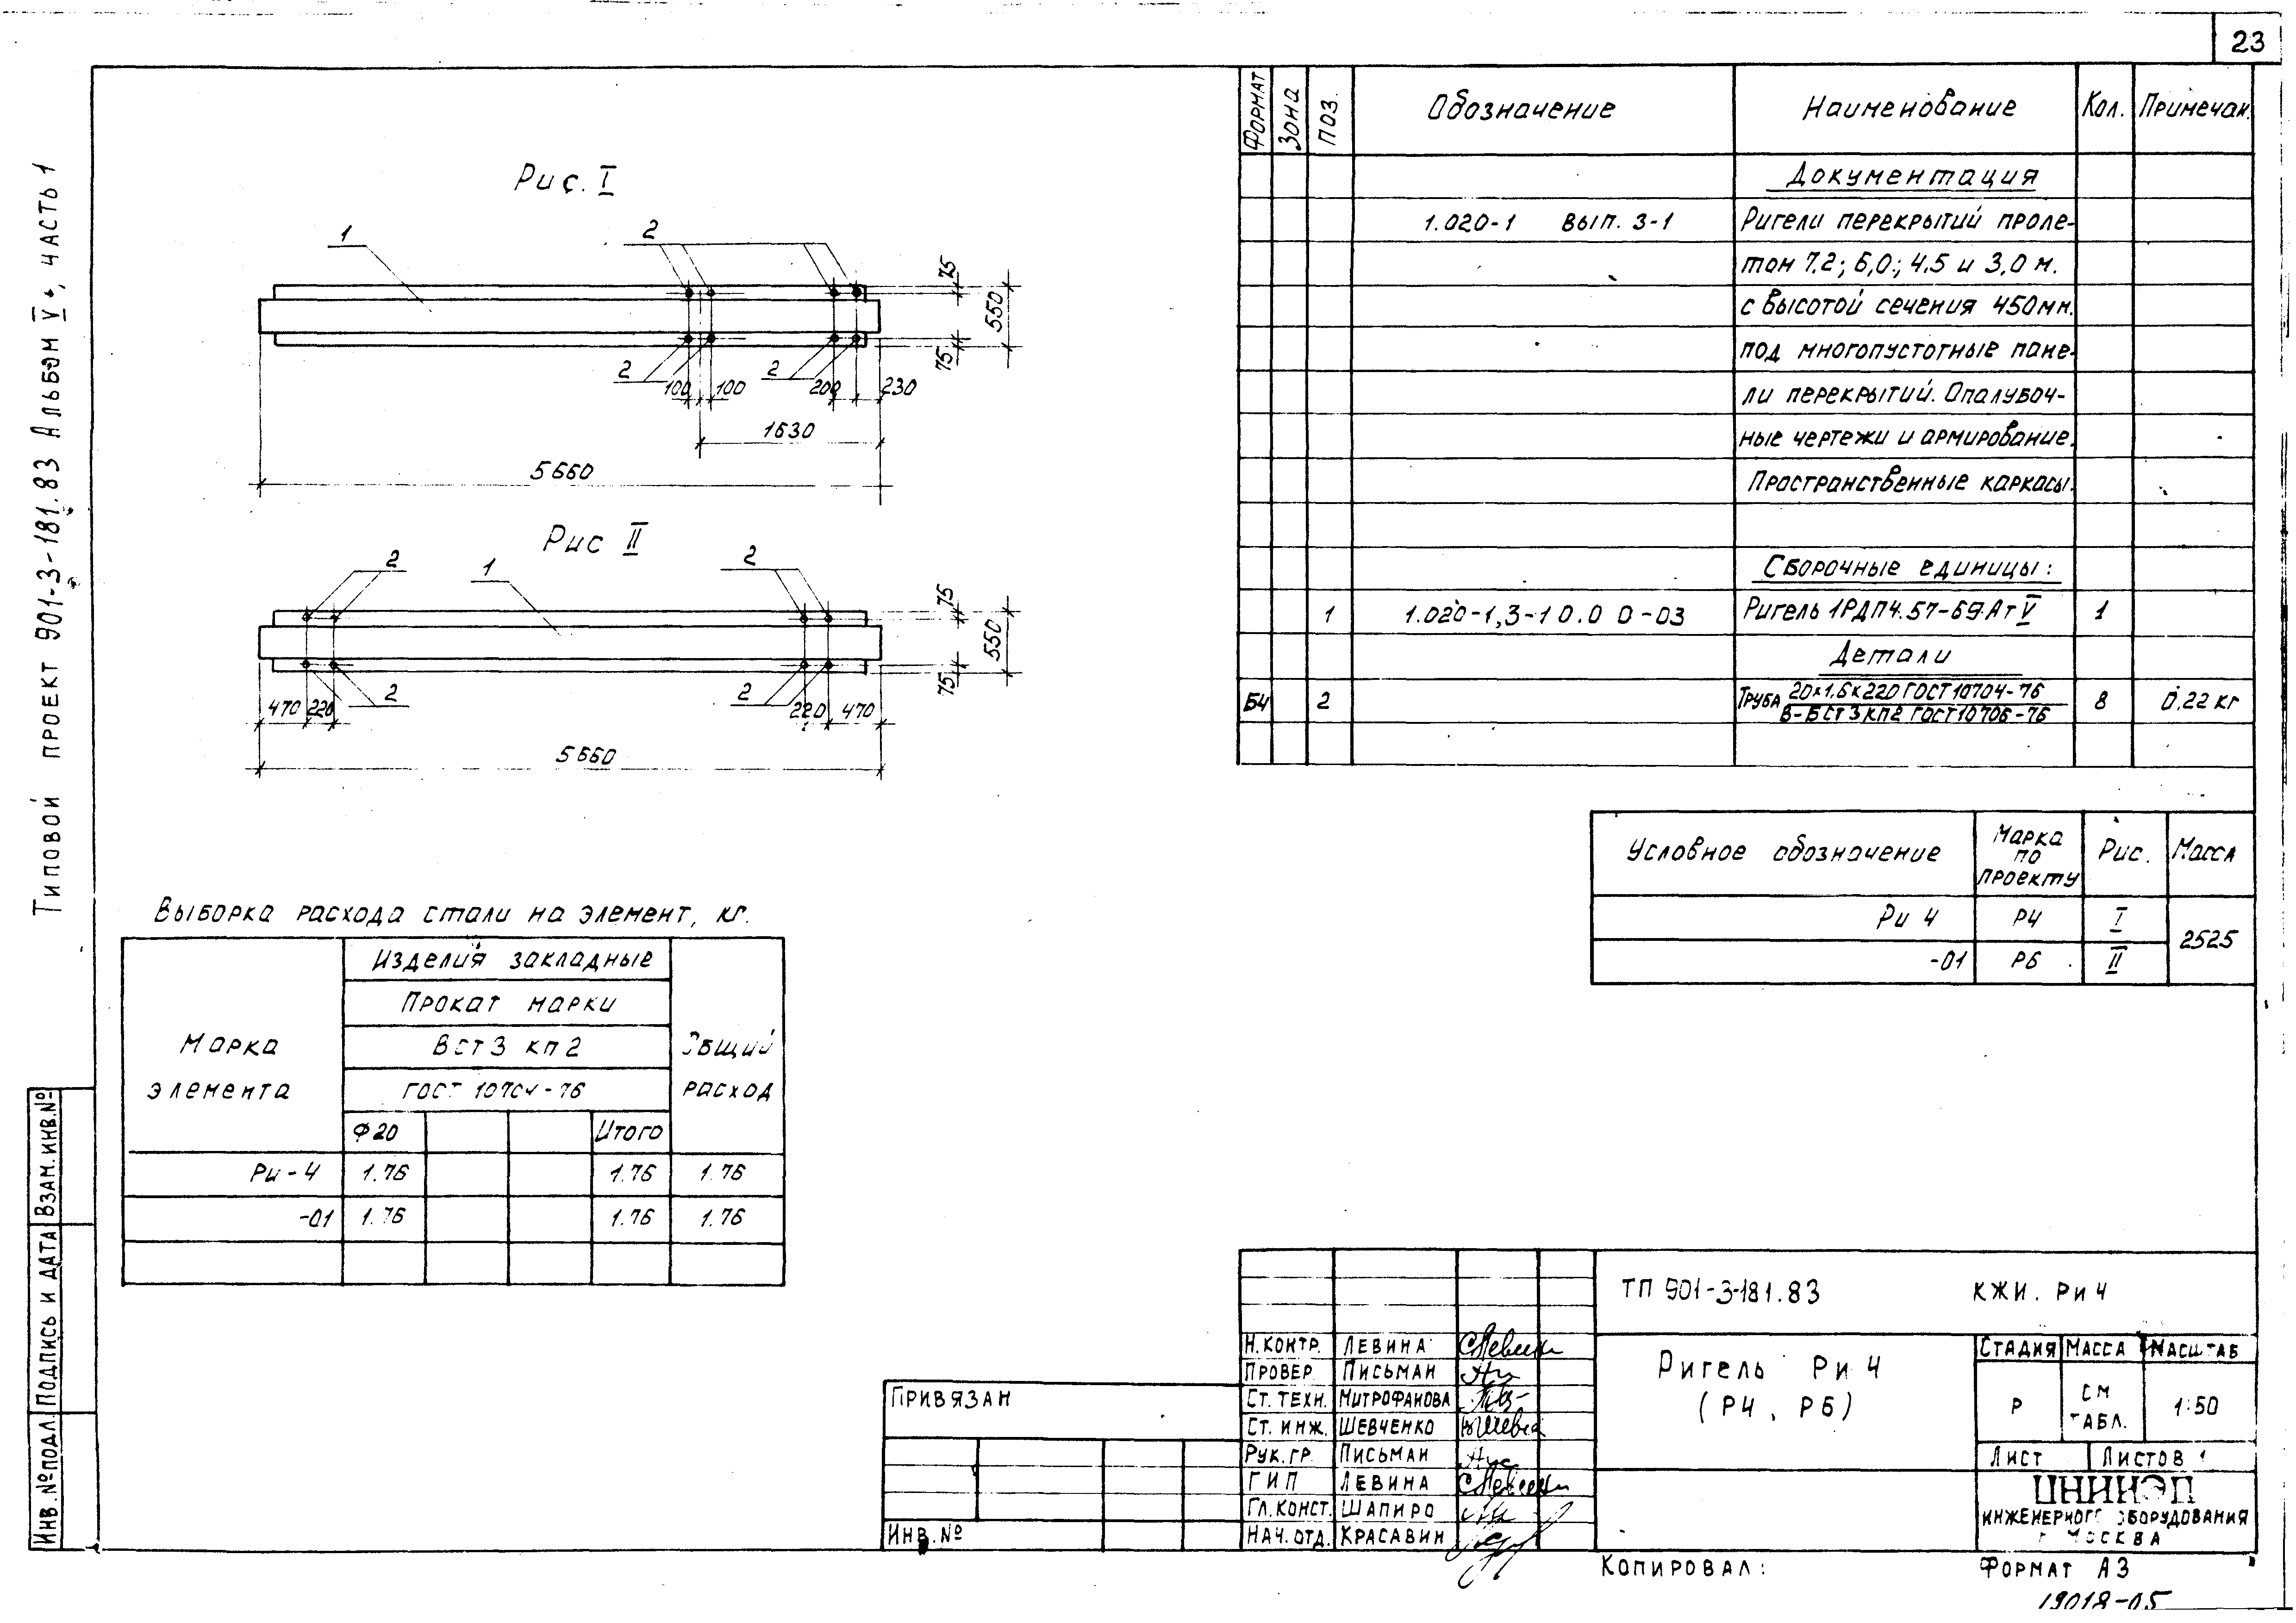 23
Типовой проект 901-3-181.83 Альбом V+, часть 1
Рис. I
1
2
75
550
75
2
100
100
2
200
230
1630
5660
Рис II
2
1
2
75
550
75
2
2
470
220
220
470
5660
Формат
Зона
Поз.
Обозначение
Наименование
Кол.
Примечан.
Документация
1.020-1 вып. 3-1
Ригели перекрытий проле-
том 7,2; 6,0; 4,5 и 3,0 м.
с высотой сечения 450мм.
под многопустотные пане-
ли перекрытий. Опалубоч-
ные чертежи и армирование.
Пространственные каркасы.
Сборочные единицы:
1
1.020-1,3-1 0.0 0-03
Ригель 1РДП4.57-69.Ат V
1
Детали
Б4
2
Труба 20х1.6х220 ГОСТ 10704-76
В-БСт3кп2 ГОСТ10706-76
8
0,22 кг
Условное обозначение
Марка по проекту
Рис.
Масса
Ри 4
Р4
I
2525
-01
Р6
II
Выборка расхода стали на элемент, кг.
Марка элемента
Изделия закладные
Прокат марки
Вст3 кп2
ГОСТ 10704-76
Общий расход
Ф20
Итого
Ри-4
1.76
1.76
1.76
-01
1.76
1.76
1.76
Взам. инв. №
Подпись и дата
Инв. № подл.
Привязан
Инв. №
Н.контр. Левина
Провер. Письман
Ст. техн. Митрофанова
Ст. инж. Шевченко
Рук. гр. Письман
ГИП Левина
Гл. конст. Шапиро
Нач. отд. Красавин
ТП 901-3-181.83 КЖИ. Ри 4
Ригель Ри 4
(Р4, Р6)
Стадия
Масса
Масштаб
Р
см табл.
1:50
Лист
Листов 1
ЦНИИЭП
инженерного оборудования
г. Москва
Копировал:
Формат А3
19018-05